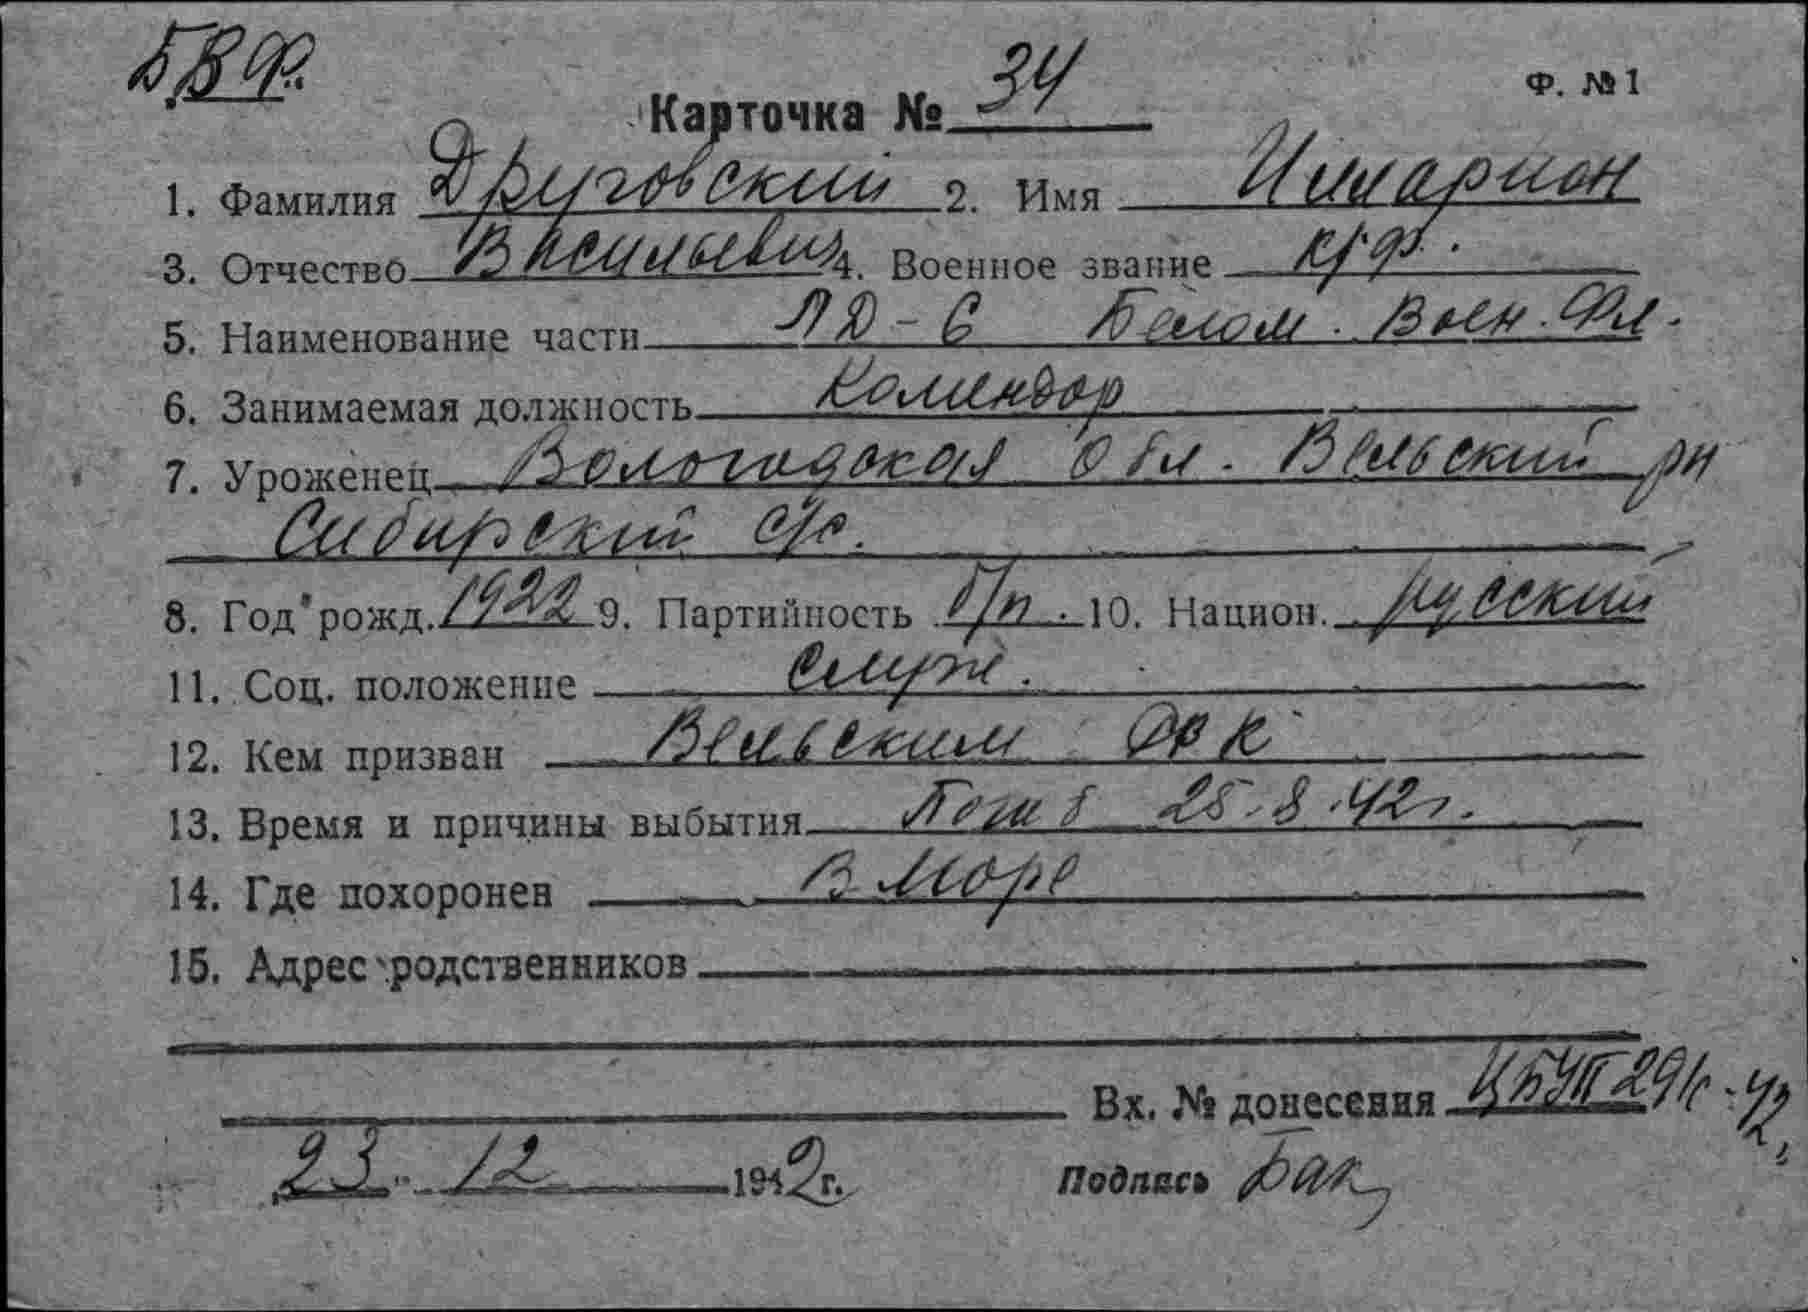 БВФ.
Ф. №1
Карточка № 34
1. Фамилия Друговский 2. Имя Илларион
3. Отчество Васильевич 4. Военное звание кр.ф.
5. Наименование части ПД-6 Белом. Воен. Фл.
6. Занимаемая должность Комендор
7. Уроженец Вологодская обл. Вельский рн
Сибирский с/с.
8. Год рожд. 1922 9. Партийность б/п. 10. Национ. русский
11. Соц. положение служ.
12. Кем призван Вельским РВК
13. Время и причины выбытия Погиб 25.8.42г.
14. Где похоронен В море
15. Адрес родственников
Вх. № донесения
23. 12 1942г. Подпись